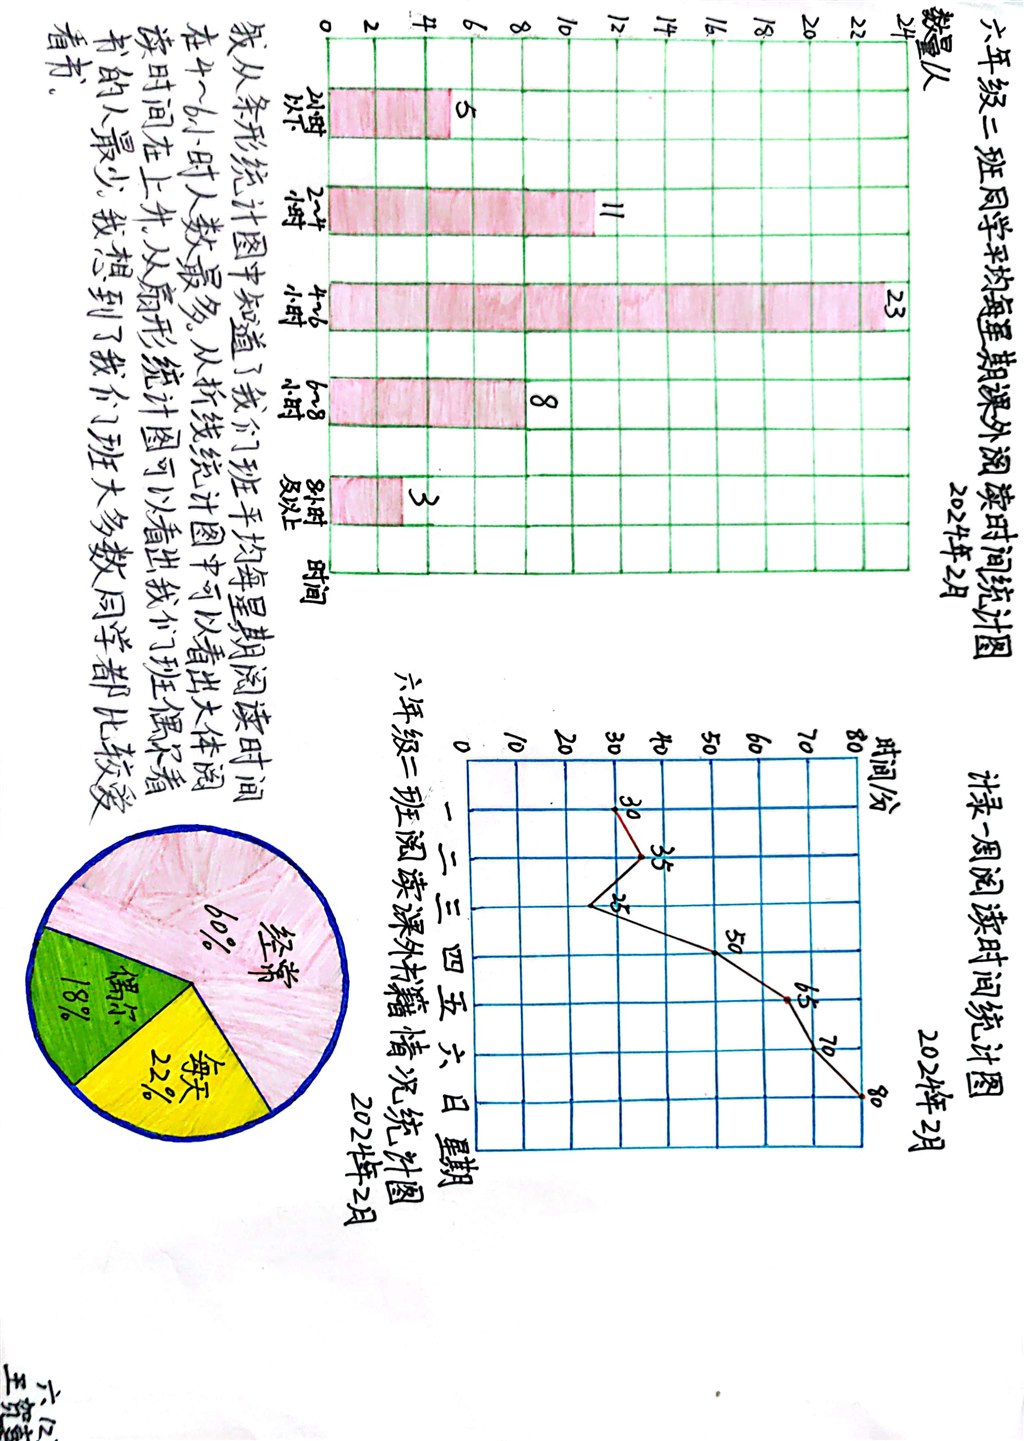 六年级二班同学平均每星期课外阅读时间统计图
2024年2月
数量/人
24
22
20
18
16
14
12
10
8
6
4
2
0
5
11
23
8
3
2小时以下
2~4小时
4~6小时
6~8小时
8小时及以上
时间
我从条形统计图中知道了我们班平均每星期阅读时间
在4~6小时人数最多。从折线统计图中可以看出大体阅
读时间在上升。从扇形统计图可以看出我们班偶尔看
书的人最少。我想到了我们班大多数同学都比较爱
看书。
计录一周阅读时间统计图
2024年2月
时间/分
80
70
60
50
40
30
20
10
0
30
35
25
50
65
70
80
一 二 三 四 五 六 日 星期
六年级二班阅读课外书籍情况统计图
2024年2月
经常
60%
每天
22%
偶尔
18%